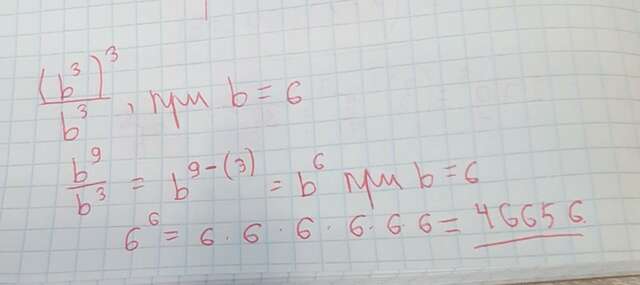 (b³)³/b³, при b = 6
b⁹/b³ = b⁹⁻⁽³⁾ = b⁶ при b = 6
6⁶ = 6 · 6 · 6 · 6 · 6 · 6 = 46656